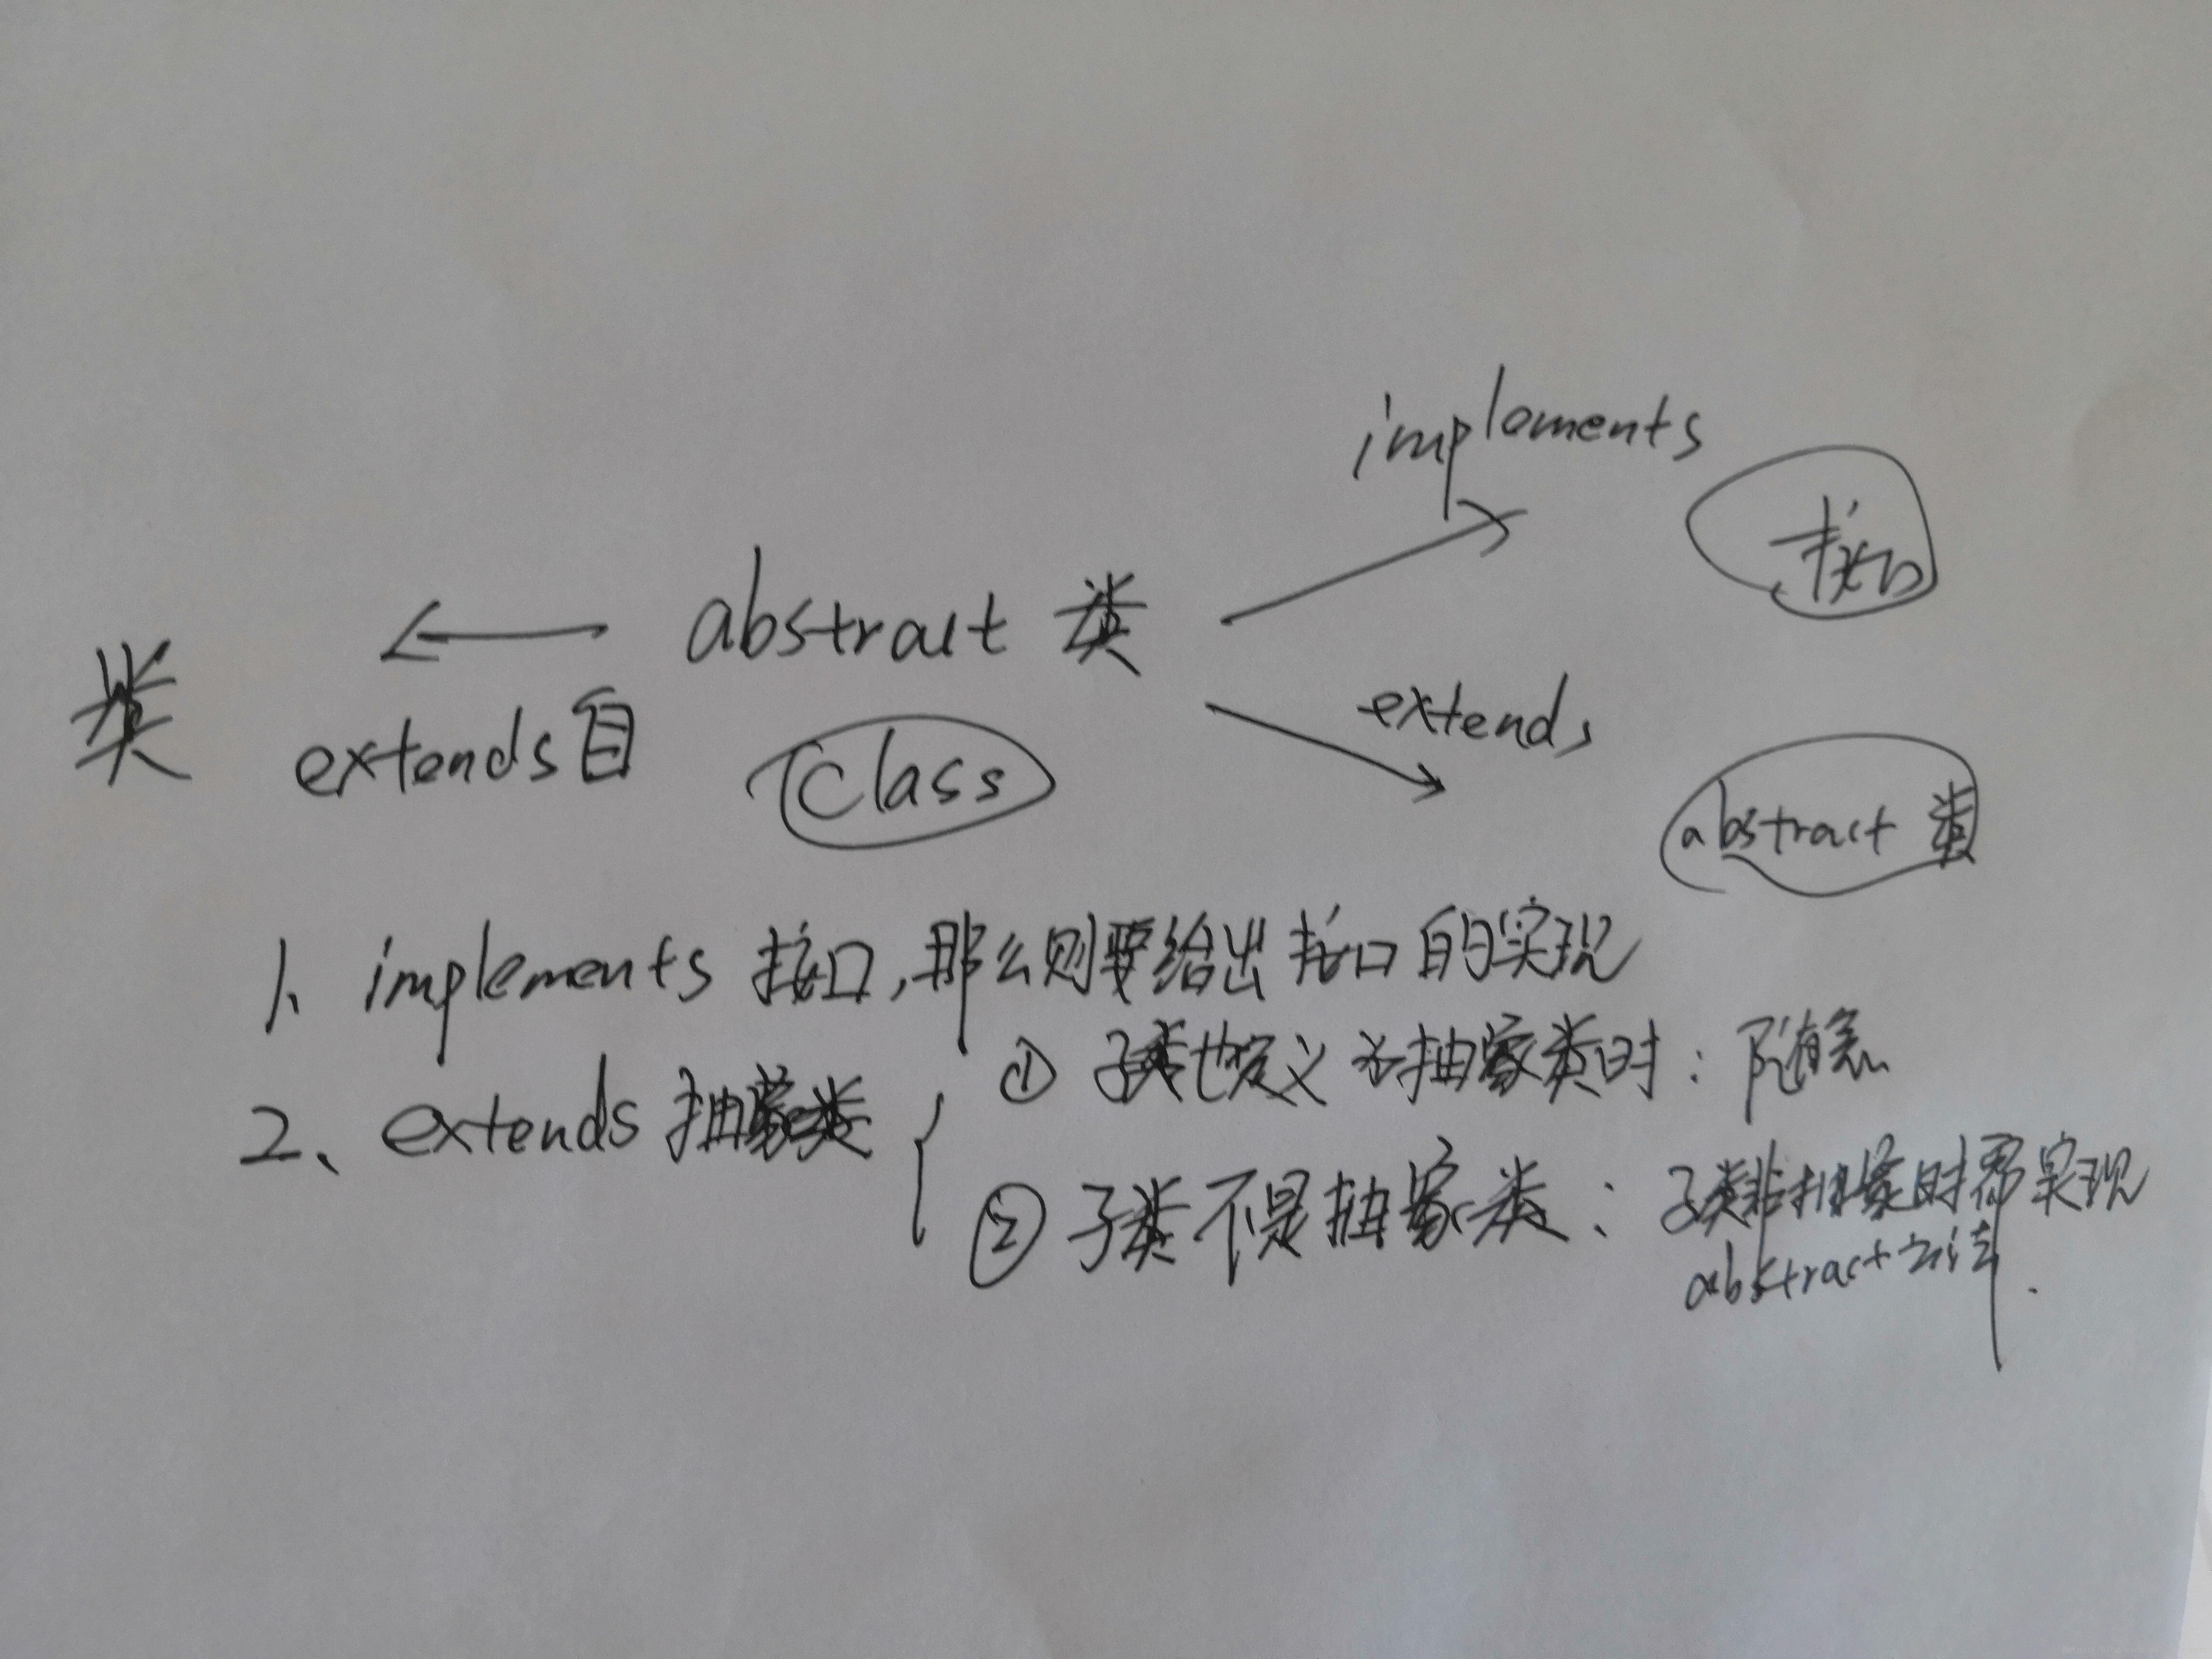 implements
接口
abstract 类
类
extends
extends自
class
abstract 类
1、implements 接口,那么则要给出接口的实现
2、extends 抽象类
① 子类也定义为抽象类时:随意
② 子类不是抽象类:子类非抽象时需实现
abstract方法.